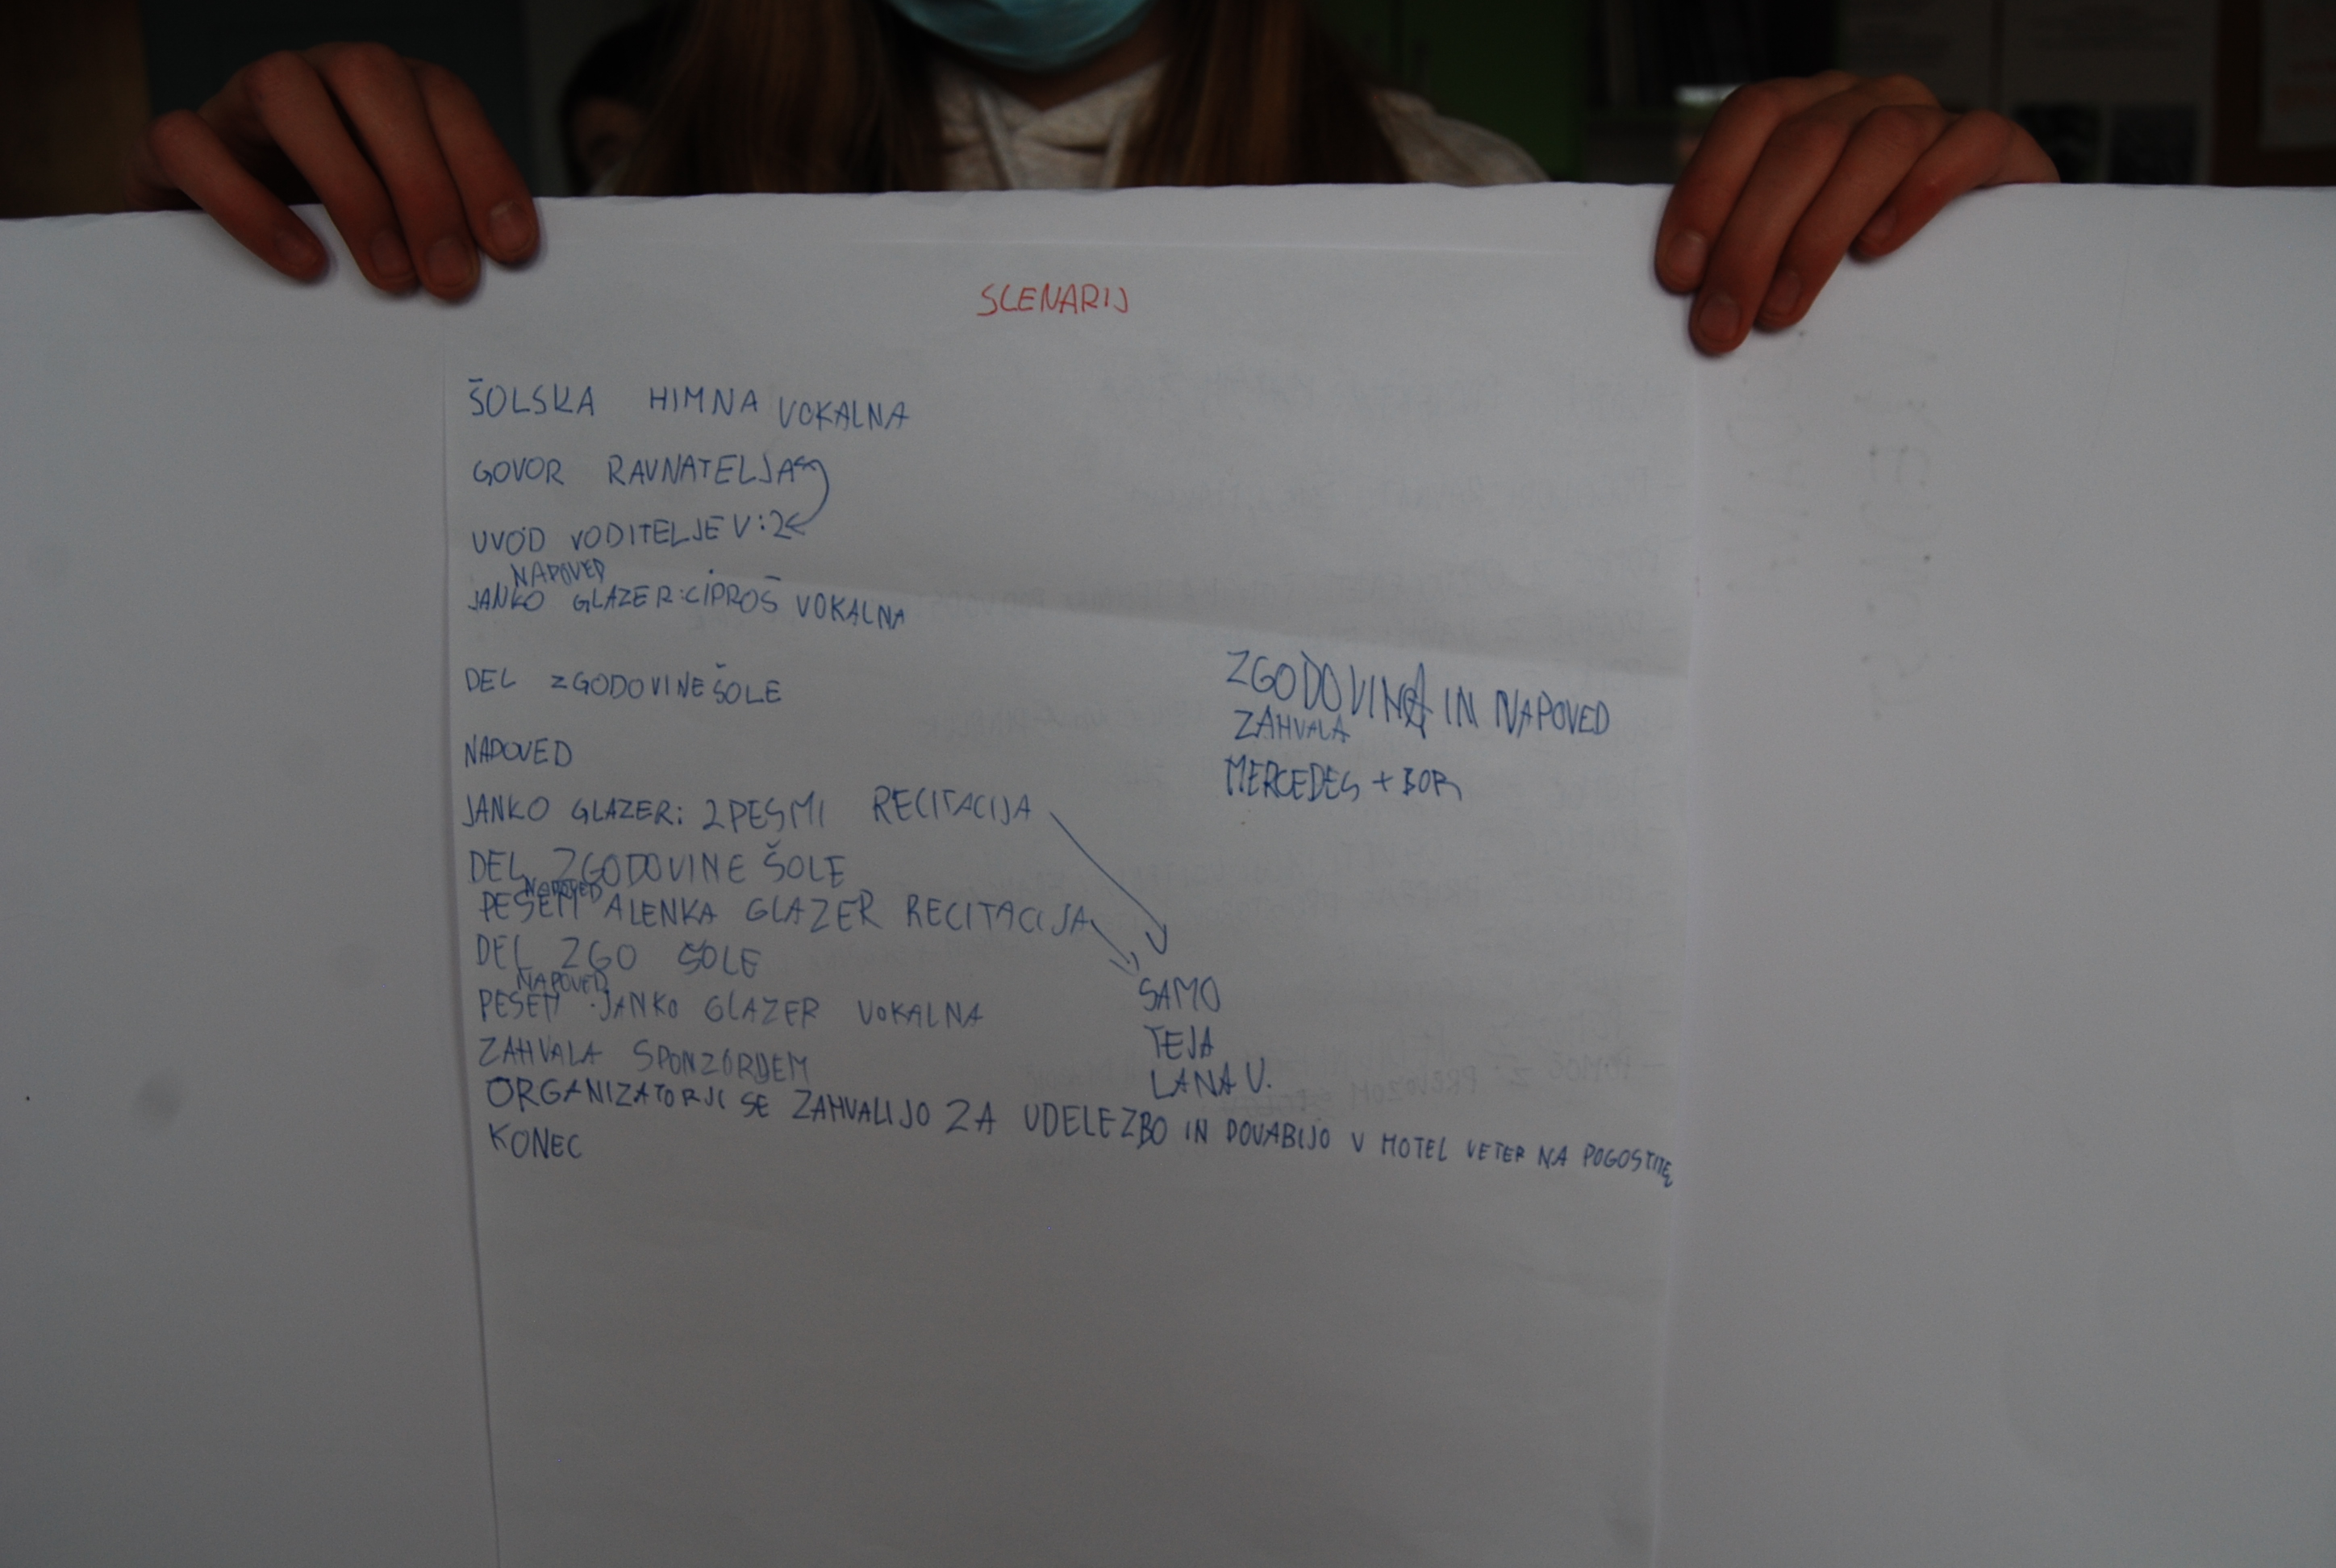 SCENARIJ
ŠOLSKA HIMNA VOKALNA
GOVOR RAVNATELJA
UVOD VODITELJEV:2
NAPOVED
JANKO GLAZER:CIPROŠ VOKALNA
DEL ZGODOVINE ŠOLE
NAPOVED
JANKO GLAZER: 2 PESMI RECITACIJA
DEL ZGODOVINE ŠOLE
NAPOVED
PESEM ALENKA GLAZER RECITACIJA
DEL ZGO ŠOLE
NAPOVED
PESEM JANKO GLAZER VOKALNA
ZAHVALA SPONZORJEM
ORGANIZATORJI SE ZAHVALIJO ZA UDELEZBO IN POVABIJO V HOTEL VETER NA POGOSTITE
KONEC
ZGODOVINA IN NAPOVED
ZAHVALA
MERCEDES + BOR
SAMO
TEJA
LANA V.